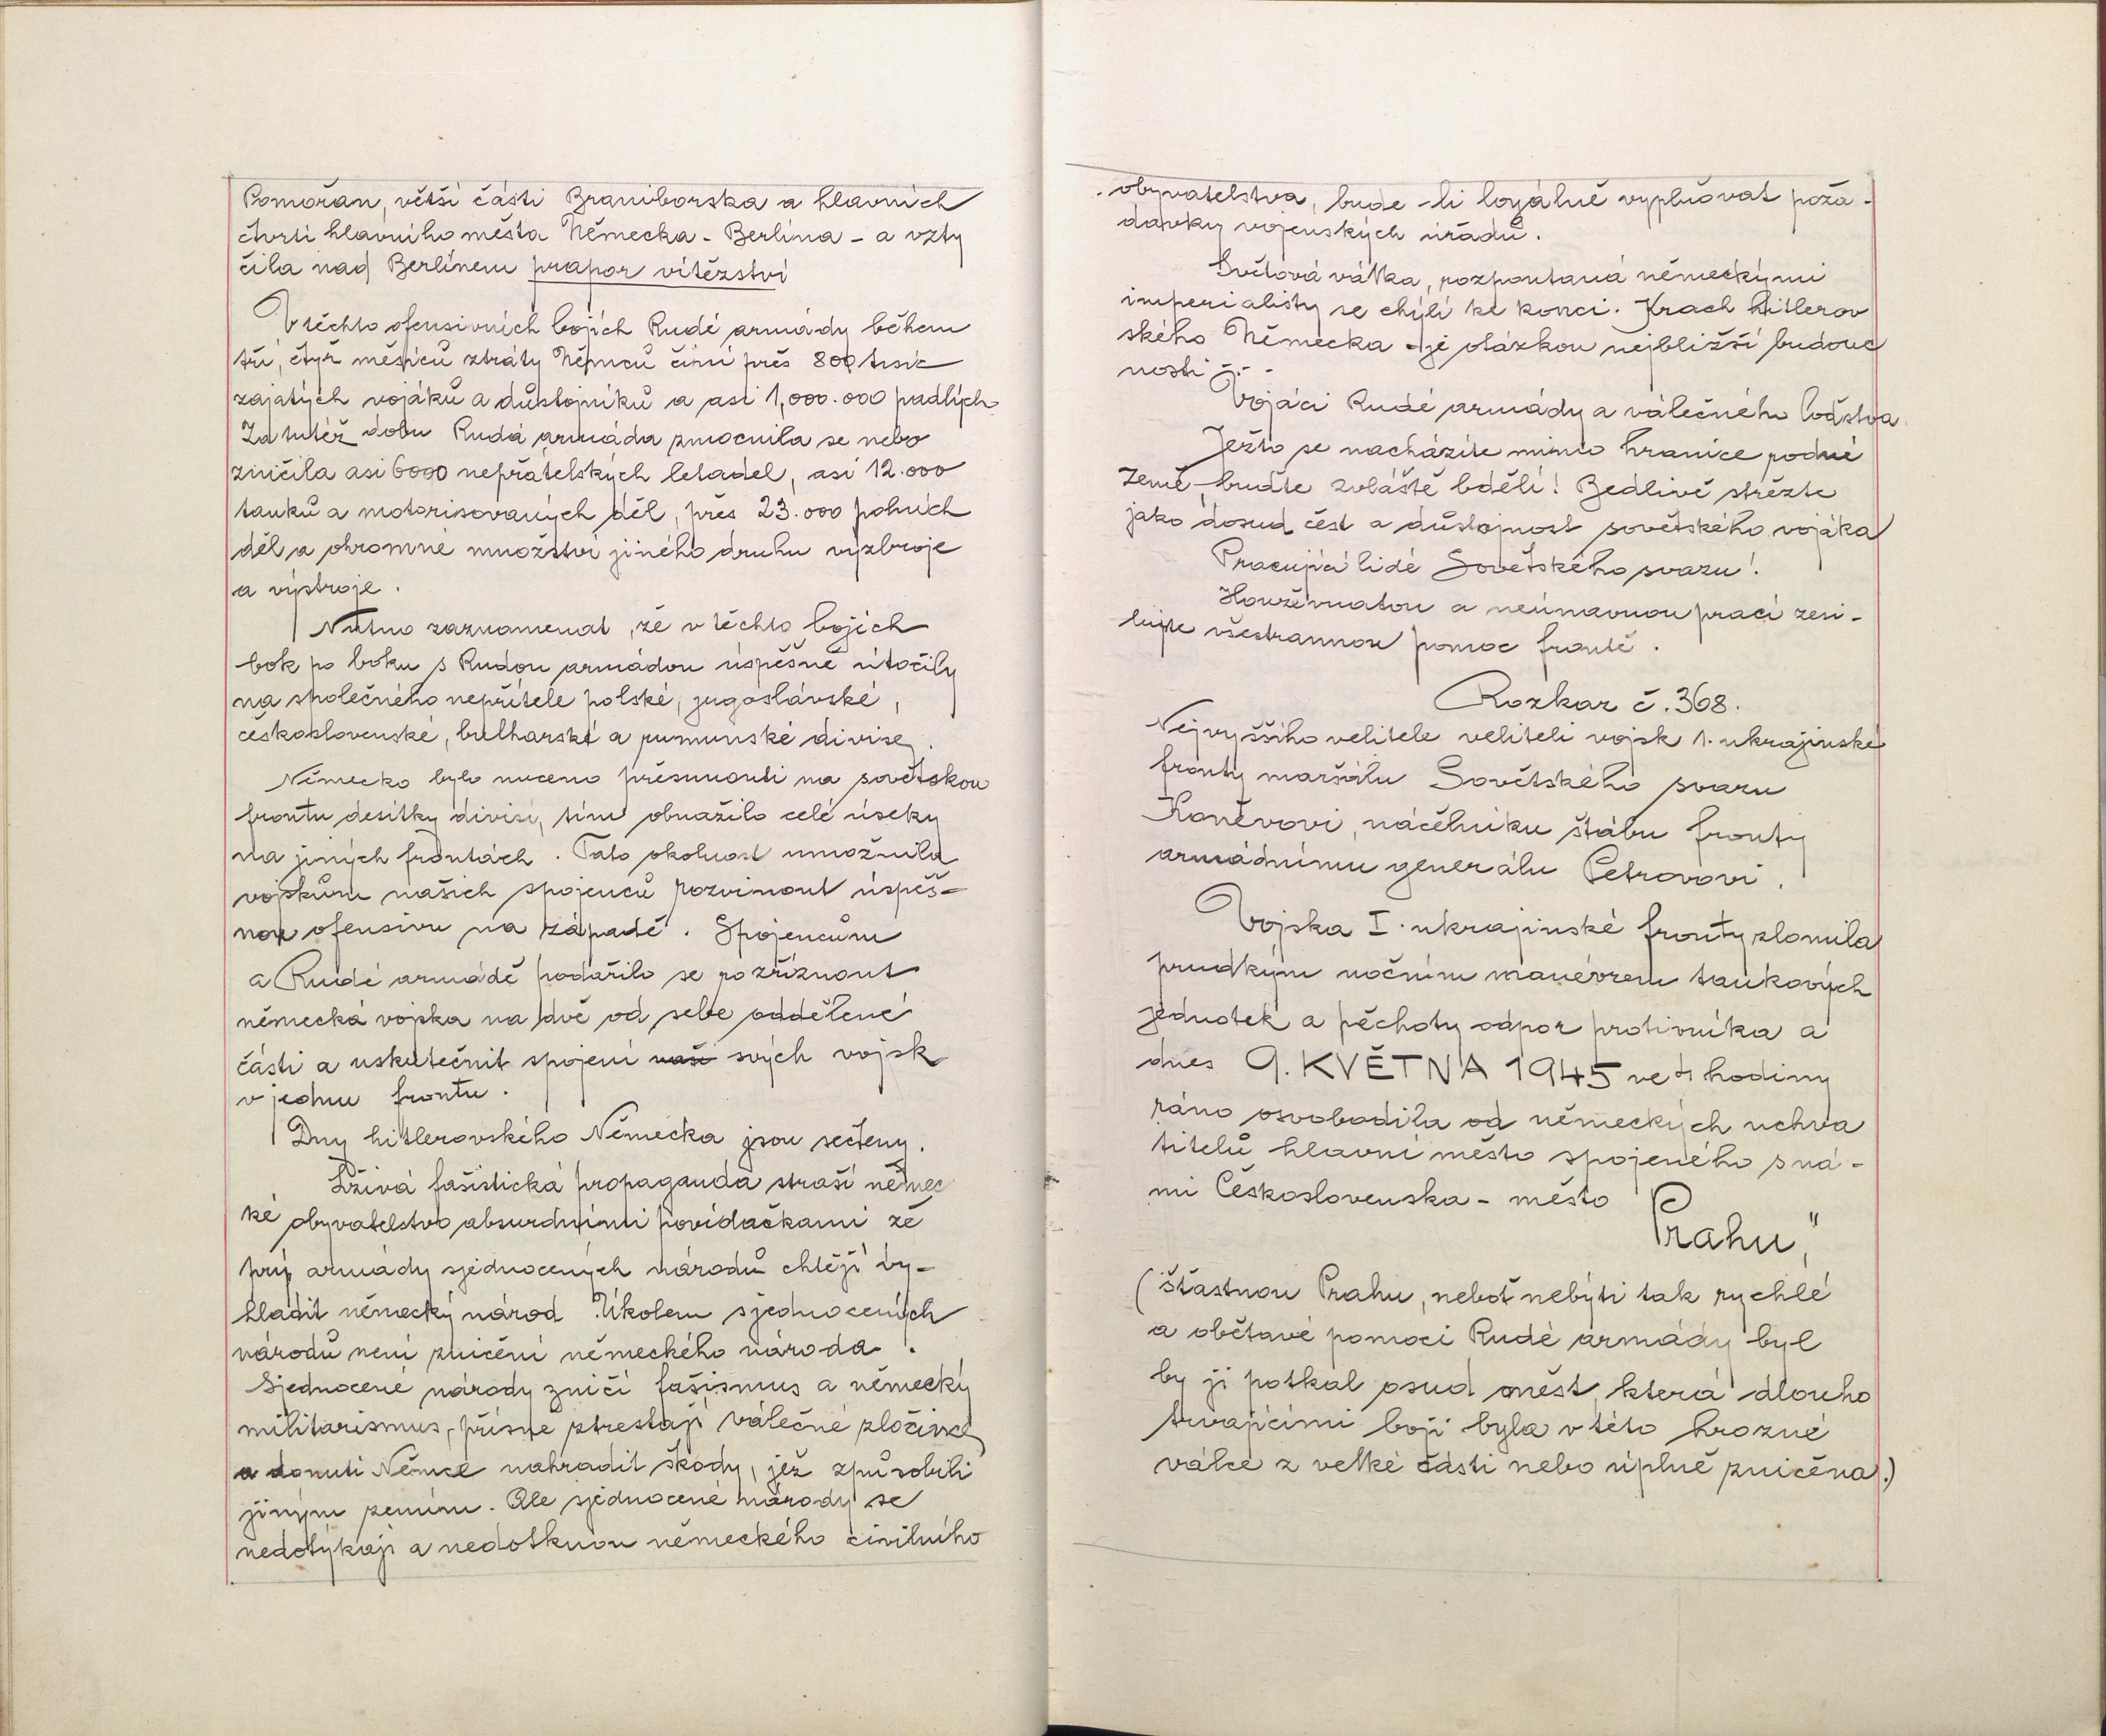 Pomořan, větší části Braniborska a hlavních
čtvrtí hlavního města Německa - Berlína - a vzty
čila nad Berlínem prapor vítězství
V těchto ofensivních bojích Rudé armády během
tří, čtyř měsíců ztráty Němců činí přes 800 tisíc
zajatých vojáků a důstojníků a asi 1,000.000 padlích.
Za tutéž dobu Rudá armáda zmocnila se nebo
zničila asi 6000 nepřátelských letadel, asi 12.000
tanků a motorisovaných děl, přes 23.000 polních
děl a ohromné množství jiného druhu výzbroje
a výstroje.
Nutno zaznamenat, že v těchto bojích
bok po boku s Rudou armádou úspěšně útočily
na společného nepřítele polské, jugoslávské,
československé, bulharské a rumunské divise.
Německo bylo nuceno přesunouti na sovětskou
frontu desítky divisí, tím obnažilo celé úseky
na jiných frontách. Tato okolnost umožnila
vojskům našich spojenců rozvinout úspěš-
nou ofensivu na západě. Spojencům
a Rudé armádě podařilo se rozříznout
německá vojska na dvě od sebe oddělené
části a uskutečnit spojení naší svých vojsk
v jednu frontu.
Dny hitlerovského Německa jsou sečteny.
Lživá fašistická propaganda straší němec
ké obyvatelstvo absurdními povídačkami že
prý armády sjednocených národů chtějí vy-
hladit německý národ. Úkolem sjednocených
národů není zničení německého národa.
Sjednocené národy zničí fašismus a německý
militarismus, přísně ztrestají válečné zločince
a donutí Němce nahradit škody, jež způsobili
jiným zemím. Ale sjednocené národy se
nedotýkají a nedotknou německého civilního
obyvatelstva, bude-li loyálně vyplňovat poža-
davky vojenských úřadů.
Světová válka, rozpoutaná německými
imperialisty se chýlí ke konci. Krach hitlerov
ského Německa - je otázkou nejbližší budouc
nosti - . -
Vojáci Rudé armády a válečného loďstva.
Ježto se nacházíte mimo hranice rodné
Země, buďte zvláště bdělí! Bedlivě střežte
jako dosud čest a důstojnost sovětského vojáka
Pracující lidé Sovětského svazu!
Houževnatou a neúnavnou prací zesi-
lujte všestrannou pomoc frontě.
Rozkaz č. 368.
Nejvyššího velitele veliteli vojsk 1. ukrajinské
fronty maršálu Sovětského svazu
Koněvovi, náčelníku štábu fronty
armádnímu generálu Petrovovi.
Vojska I. ukrajinské fronty zlomila
prudkým nočním manévrem tankových
jednotek a pěchoty odpor protivníka a
dnes 9. KVĚTNA 1945 ve 4 hodiny
ráno osvobodila od německých uchva
titelů hlavní město spojeného s ná-
mi Československa - město
Prahu,"
(šťastnou Prahu, neboť nebýti tak rychlé
a obětavé pomoci Rudé armády byl
by ji potkal osud měst, která dlouho
trvajícími boji byla v této hrozné
válce z velké části nebo úplně zničena.)